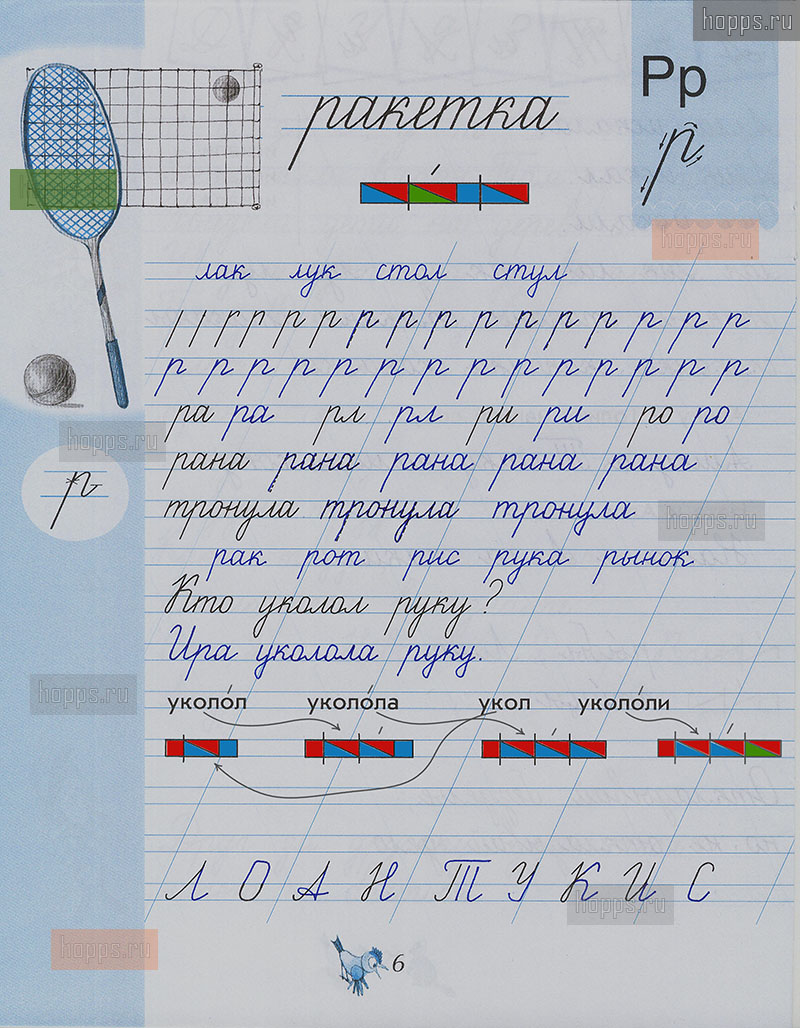 hopps.ru
Рр
р
ракетка
hopps.ru
лак лук стол стул
р р р р р р р р р р р
р р р р р р р р р р р р р р р
ра ра рл рл ри ри ро ро
hopps.ru
рана рана рана рана рана
р
тронула тронула тронула
hopps.ru
рак рот рис рука рынок
Кто уколол руку?
Ира уколола руку.
hopps.ru
уколо́л уколо́ла укол уколо́ли
Л О А Н Т У К И С
hopps.ru
hopps.ru
6